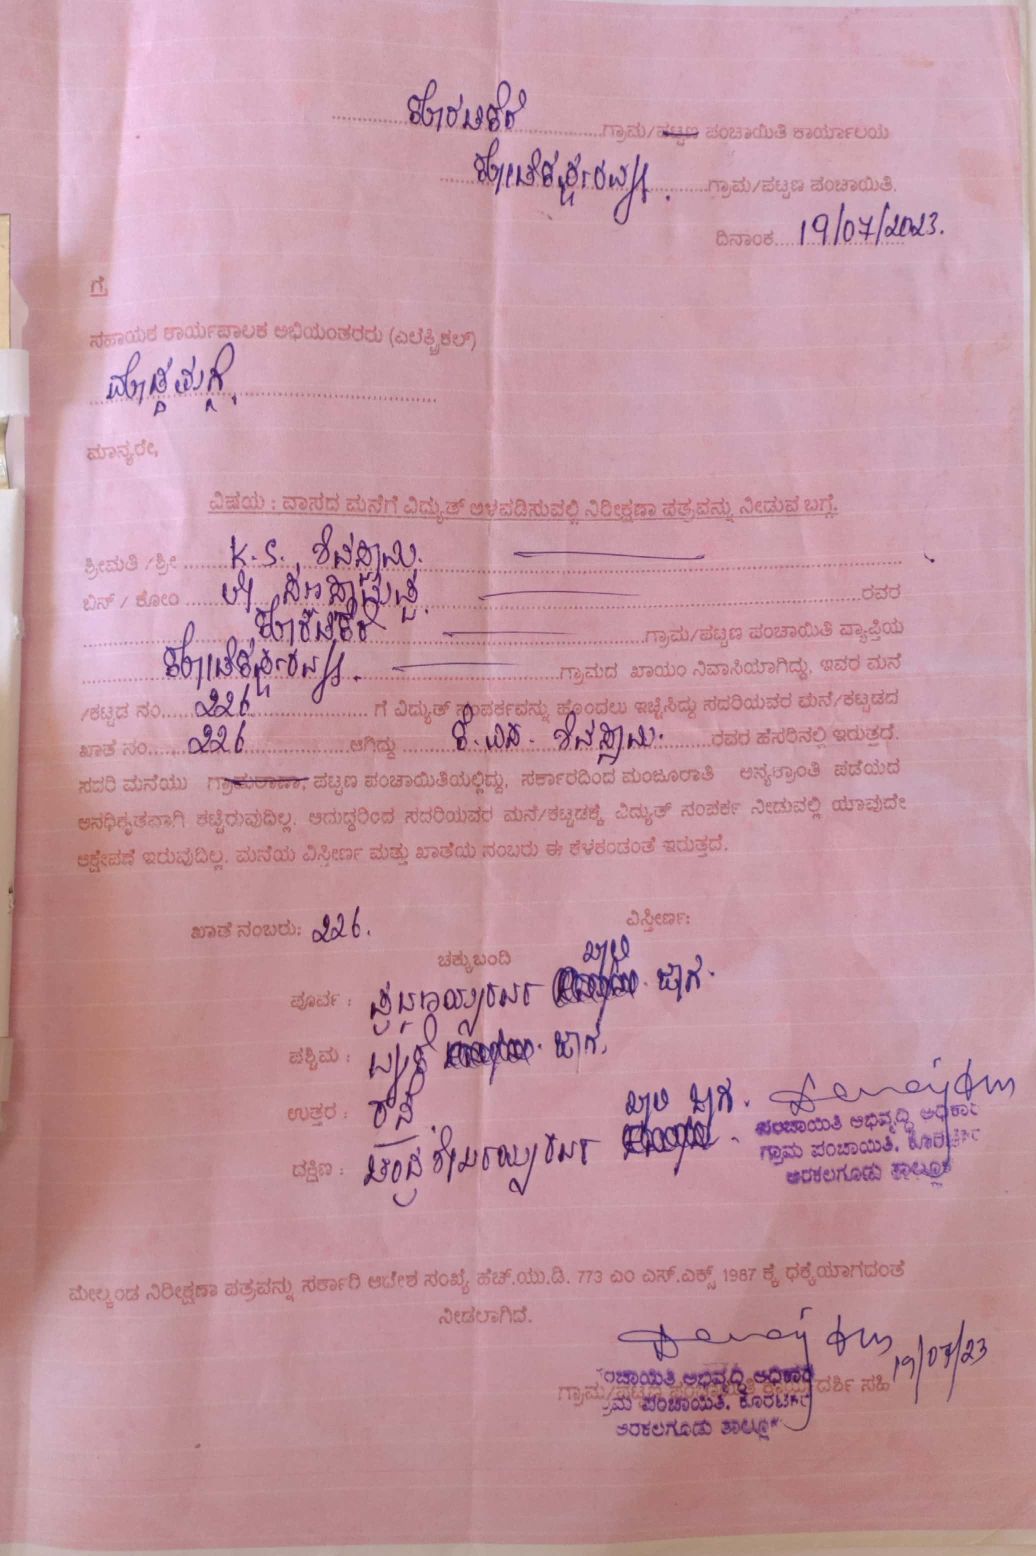 ಕೊರಟಿಕೆರೆ ಗ್ರಾಮ/ಪಟ್ಟಣ ಪಂಚಾಯಿತಿ ಕಾರ್ಯಾಲಯ
ಗ್ರಾಮ/ಪಟ್ಟಣ ಪಂಚಾಯಿತಿ.
ದಿನಾಂಕ 19/07/2023.
ಗೆ,
ಸಹಾಯಕ ಕಾರ್ಯಪಾಲಕ ಅಭಿಯಂತರರು (ಎಲೆಕ್ಟ್ರಿಕಲ್)
ಮಾನ್ಯರೇ,
ವಿಷಯ : ವಾಸದ ಮನೆಗೆ ವಿದ್ಯುತ್ ಅಳವಡಿಸುವಲ್ಲಿ ನಿರೀಕ್ಷಣಾ ಪತ್ರವನ್ನು ನೀಡುವ ಬಗ್ಗೆ.
ಶ್ರೀಮತಿ /ಶ್ರೀ K.S. ಶಿವಸ್ವಾಮಿ.
ಬಿನ್ / ಕೋಂ ರವರ
ಕೊರಟಿಕೆರೆ ಗ್ರಾಮ/ಪಟ್ಟಣ ಪಂಚಾಯಿತಿ ವ್ಯಾಪ್ತಿಯ
ಗ್ರಾಮದ ಖಾಯಂ ನಿವಾಸಿಯಾಗಿದ್ದು, ಇವರ ಮನೆ
/ಕಟ್ಟಡ ನಂ. 226 ಗೆ ವಿದ್ಯುತ್ ಸಂಪರ್ಕವನ್ನು ಹೊಂದಲು ಇಚ್ಛಿಸಿದ್ದು ಸದರಿಯವರ ಮನೆ/ಕಟ್ಟಡದ
ಖಾತೆ ನಂ. 226 ಆಗಿದ್ದು ಕೆ.ಎಸ್. ಶಿವಸ್ವಾಮಿ. ರವರ ಹೆಸರಿನಲ್ಲಿ ಇರುತ್ತದೆ.
ಸದರಿ ಮನೆಯು ಗ್ರಾಮಠಾಣಾ, ಪಟ್ಟಣ ಪಂಚಾಯಿತಿಯಲ್ಲಿದ್ದು, ಸರ್ಕಾರದಿಂದ ಮಂಜೂರಾತಿ ಅನ್ಯಕ್ರಾಂತಿ ಪಡೆಯದ
ಅನಧಿಕೃತವಾಗಿ ಕಟ್ಟಿರುವುದಿಲ್ಲ. ಆದುದ್ದರಿಂದ ಸದರಿಯವರ ಮನೆ/ಕಟ್ಟಡಕ್ಕೆ ವಿದ್ಯುತ್ ಸಂಪರ್ಕ ನೀಡುವಲ್ಲಿ ಯಾವುದೇ
ಆಕ್ಷೇಪಣೆ ಇರುವುದಿಲ್ಲ. ಮನೆಯ ವಿಸ್ತೀರ್ಣ ಮತ್ತು ಖಾತೆಯ ನಂಬರು ಈ ಕೆಳಕಂಡಂತೆ ಇರುತ್ತದೆ.
ಖಾತೆ ನಂಬರು: 226. ವಿಸ್ತೀರ್ಣ:
ಚಕ್ಕುಬಂದಿ
ಪೂರ್ವ : ಜಾಗ.
ಪಶ್ಚಿಮ : ಜಾಗ.
ಉತ್ತರ : ರಸ್ತೆ
ದಕ್ಷಿಣ :
ಪಂಚಾಯಿತಿ ಅಭಿವೃದ್ಧಿ ಅಧಿಕಾರಿ
ಗ್ರಾಮ ಪಂಚಾಯಿತಿ, ಕೊರಟಿಕೆರೆ
ಅರಕಲಗೂಡು ತಾಲ್ಲೂಕು
ಮೇಲ್ಕಂಡ ನಿರೀಕ್ಷಣಾ ಪತ್ರವನ್ನು ಸರ್ಕಾರಿ ಆದೇಶ ಸಂಖ್ಯೆ ಹೆಚ್.ಯು.ಡಿ. 773 ಎಂ ಎಸ್.ಎಕ್ಸ್ 1987 ಕ್ಕೆ ಧಕ್ಕೆಯಾಗದಂತೆ
ನೀಡಲಾಗಿದೆ.
19/07/23
ಪಂಚಾಯಿತಿ ಅಭಿವೃದ್ಧಿ ಅಧಿಕಾರಿ
ಗ್ರಾಮ/ಪಟ್ಟಣ ಪಂಚಾಯಿತಿ ಕಾರ್ಯದರ್ಶಿ ಸಹಿ
ಗ್ರಾಮ ಪಂಚಾಯಿತಿ, ಕೊರಟಿಕೆರೆ
ಅರಕಲಗೂಡು ತಾಲ್ಲೂಕು